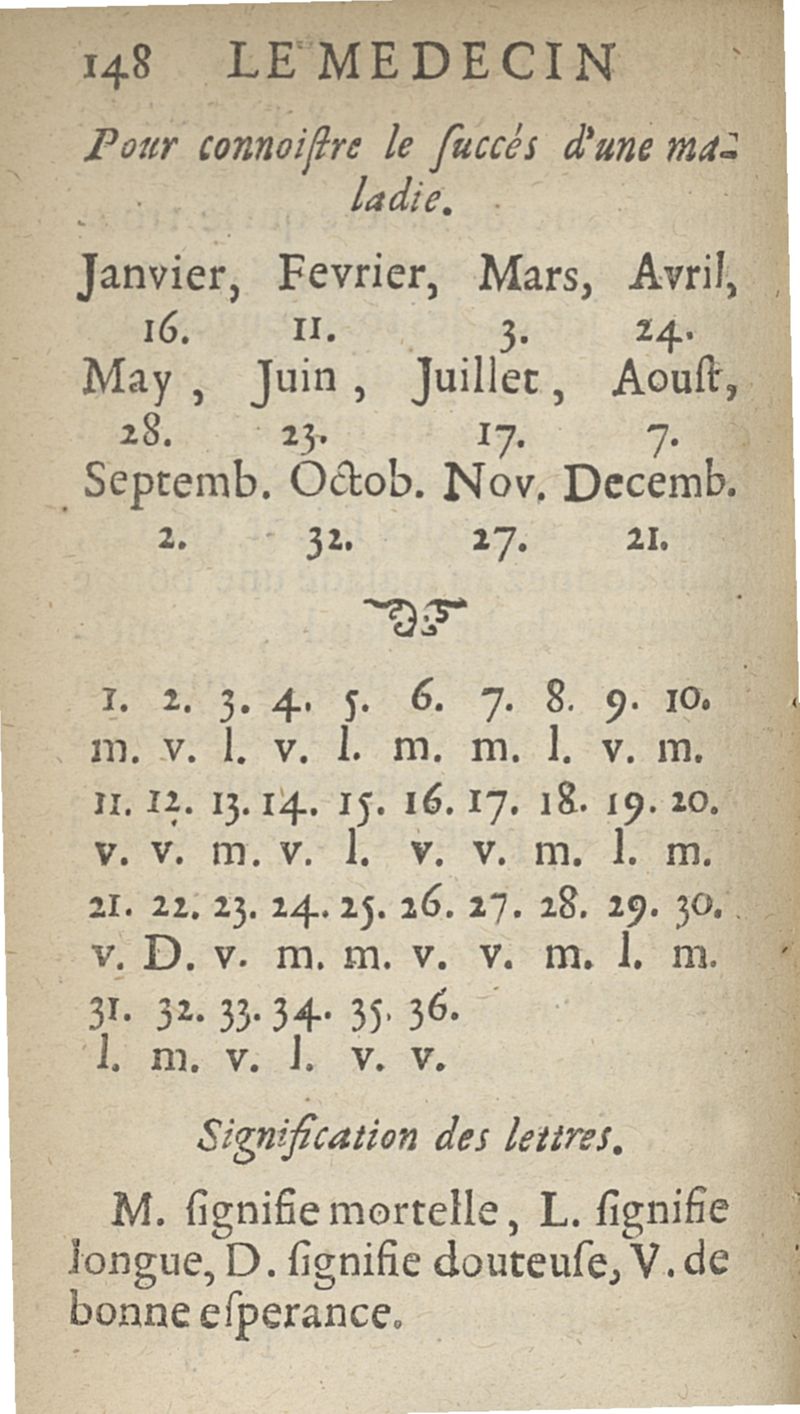 148 LE MEDECIN
Pour connoiſtre le ſuccés d'une ma-
ladie.
Janvier, Fevrier, Mars, Avril,
16. 11. 3. 24.
May , Juin , Juillet , Aouſt,
28. 23. 17. 7.
Septemb. Octob. Nov. Decemb.
2. 32. 27. 21.
1. 2. 3. 4. 5. 6. 7. 8. 9. 10.
m. v. l. v. l. m. m. l. v. m.
11. 12. 13. 14. 15. 16. 17. 18. 19. 20.
v. v. m. v. l. v. v. m. l. m.
21. 22. 23. 24. 25. 26. 27. 28. 29. 30.
v. D. v. m. m. v. v. m. l. m.
31. 32. 33. 34. 35. 36.
l. m. v. l. v. v.
Signification des lettres.
M. ſignifie mortelle, L. ſignifie
longue, D. ſignifie douteuſe, V. de
bonne eſperance.